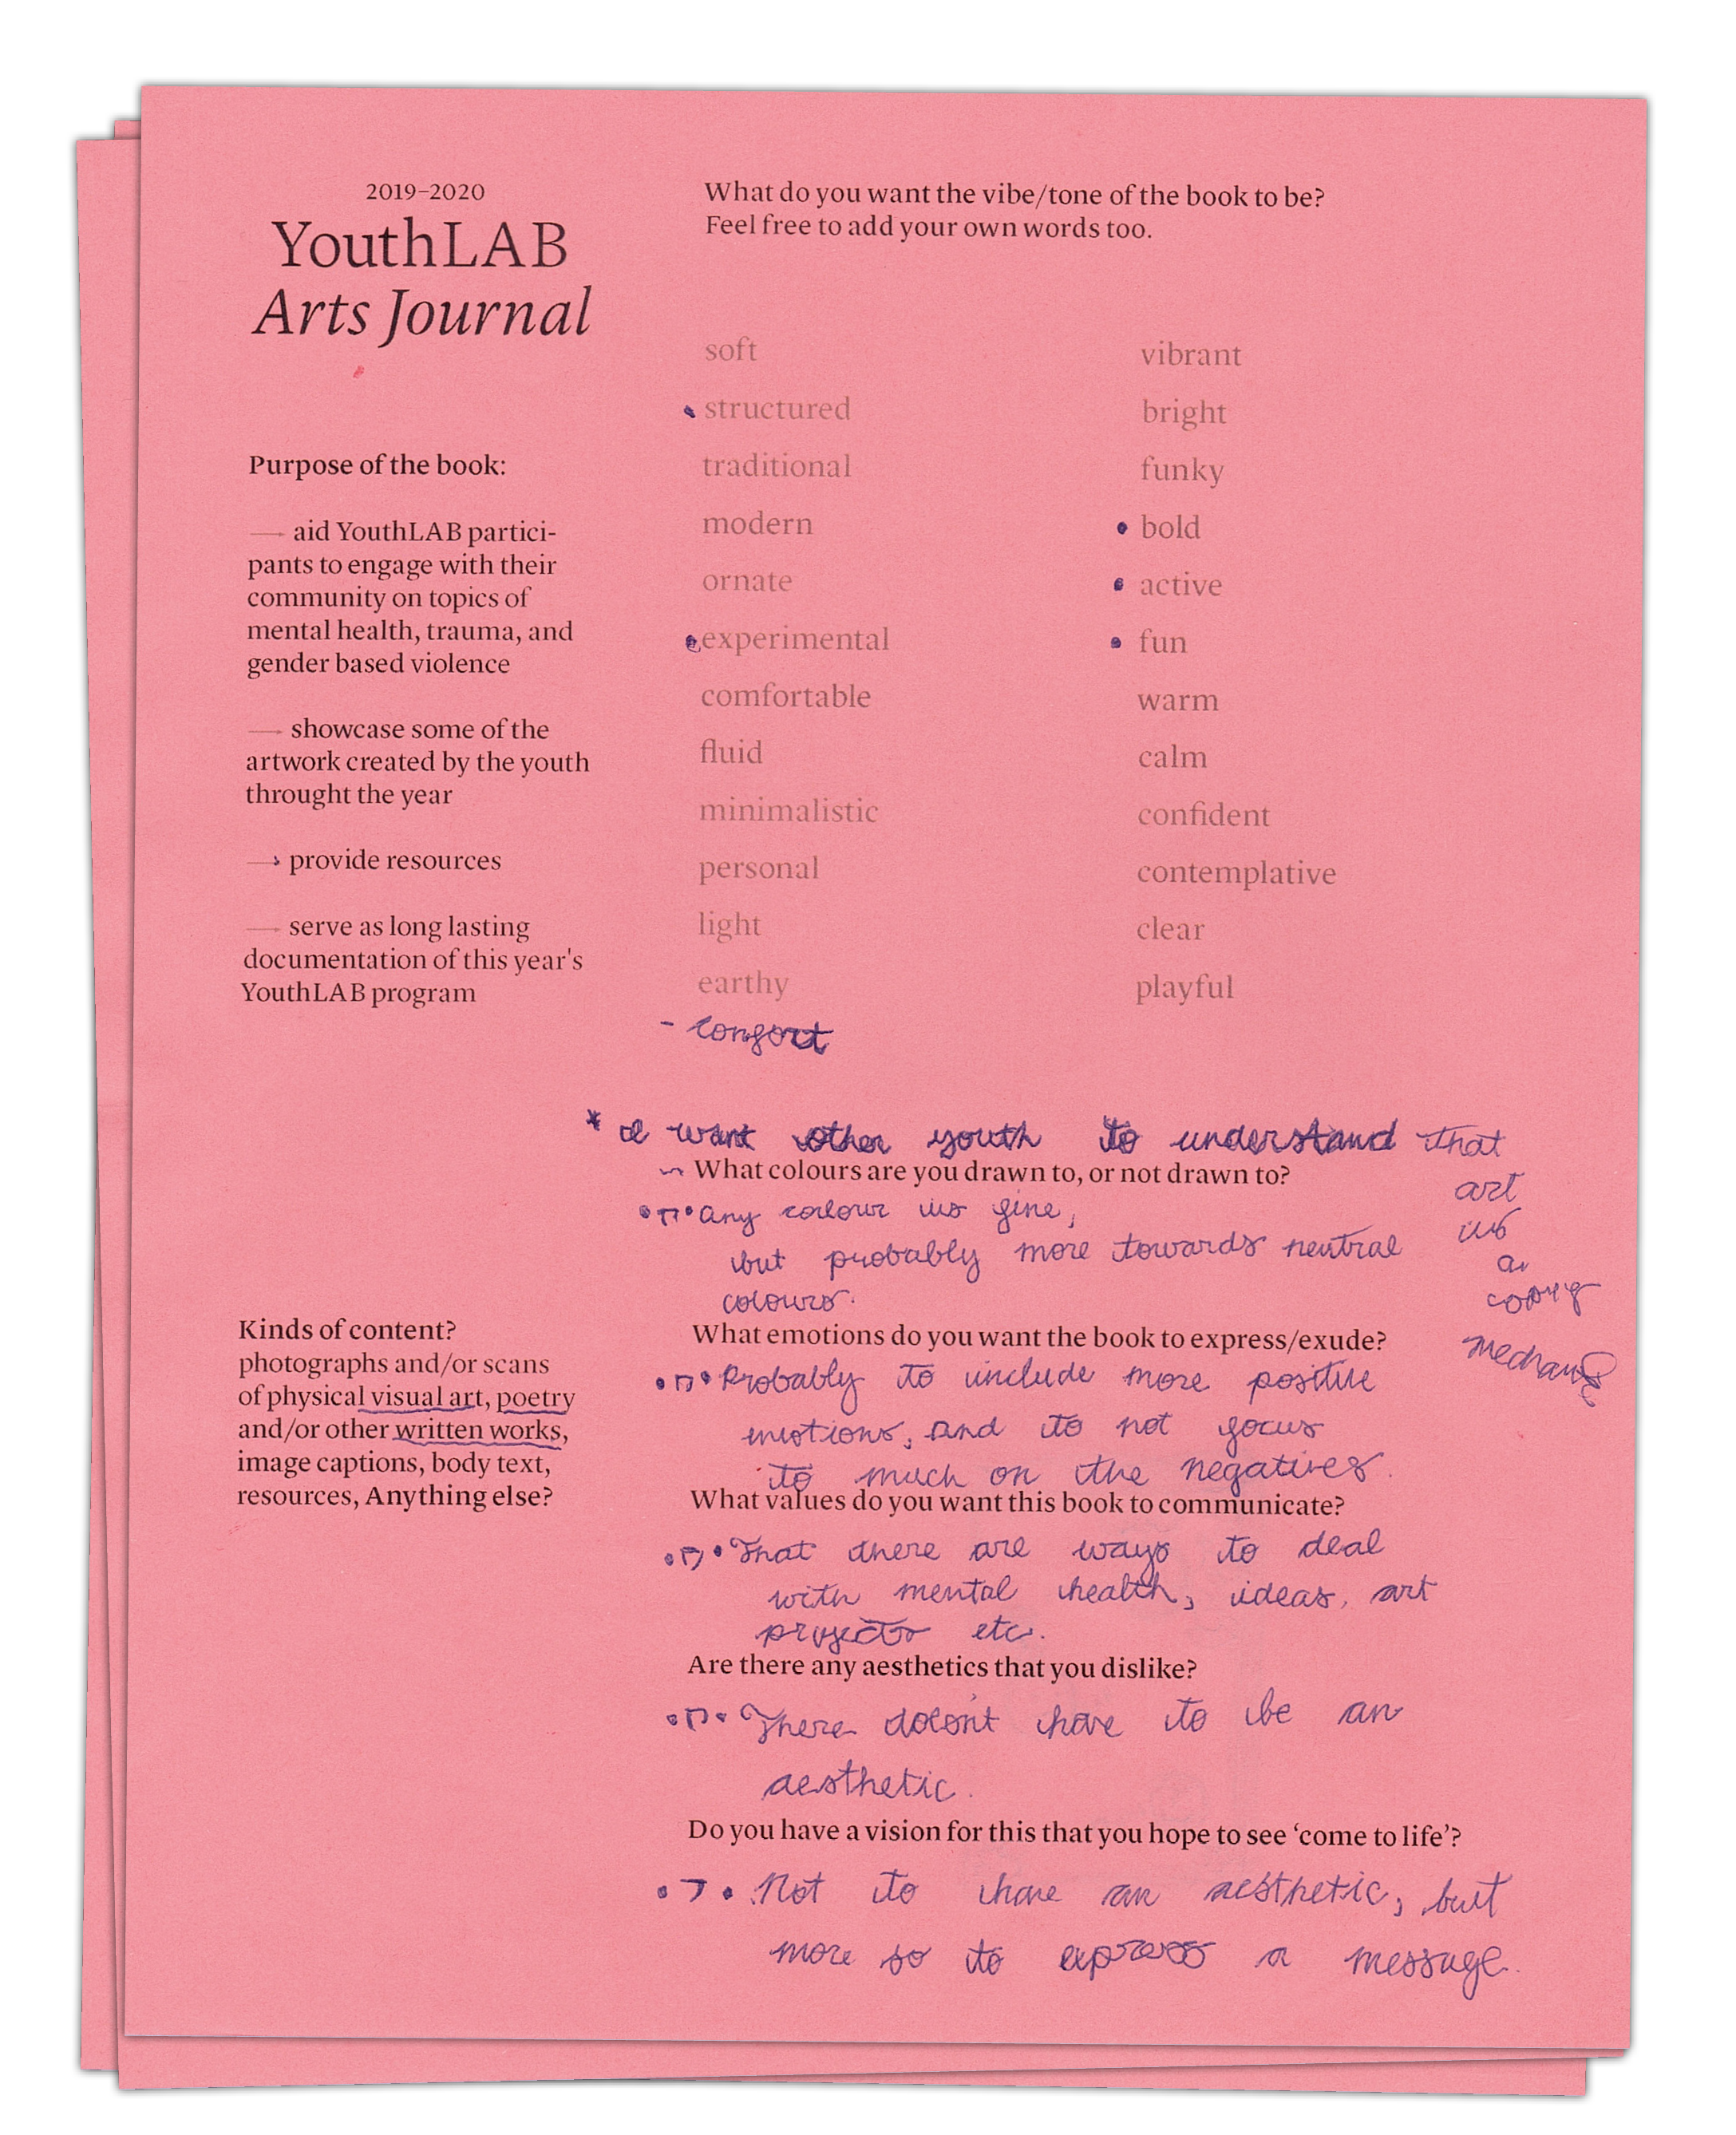 2019–2020
YouthLAB
Arts Journal
Purpose of the book:
— aid YouthLAB partici-
pants to engage with their
community on topics of
mental health, trauma, and
gender based violence
— showcase some of the
artwork created by the youth
throught the year
→ provide resources
— serve as long lasting
documentation of this year's
YouthLAB program
Kinds of content?
photographs and/or scans
of physical visual art, poetry
and/or other written works,
image captions, body text,
resources, Anything else?
What do you want the vibe/tone of the book to be?
Feel free to add your own words too.
soft
• structured
traditional
modern
ornate
• experimental
comfortable
fluid
minimalistic
personal
light
earthy
- comfort
vibrant
bright
funky
• bold
• active
• fun
warm
calm
confident
contemplative
clear
playful
* I want other youth to understand that
art
is
a
coping
What colours are you drawn to, or not drawn to?
any colour is fine,
but probably more towards neutral
colours.
What emotions do you want the book to express/exude?
Probably to include more positive
emotions, and to not focus
to much on the negatives.
What values do you want this book to communicate?
That there are ways to deal
with mental health, ideas, art
projects etc.
Are there any aesthetics that you dislike?
There doesn't have to be an
aesthetic.
Do you have a vision for this that you hope to see ‘come to life’?
Not to have an aesthetic, but
more so to express a message.